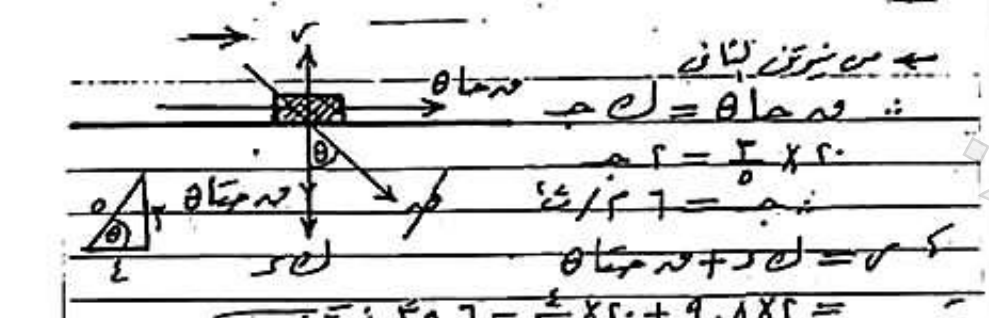 ← من نيوتن الثانى
∴ ق حا θ = ك حـ
٢٠ × ٣/٥ = ٢ حـ
∴ حـ = ٦ م/ث٢
ر = ك د + ق حتا θ
= ٢ × ٩.٨ + ٢٠ × ٤/٥ =
ر
ق حا θ
θ
ق
ق حتا θ
ك د
٥
٣
θ
٤